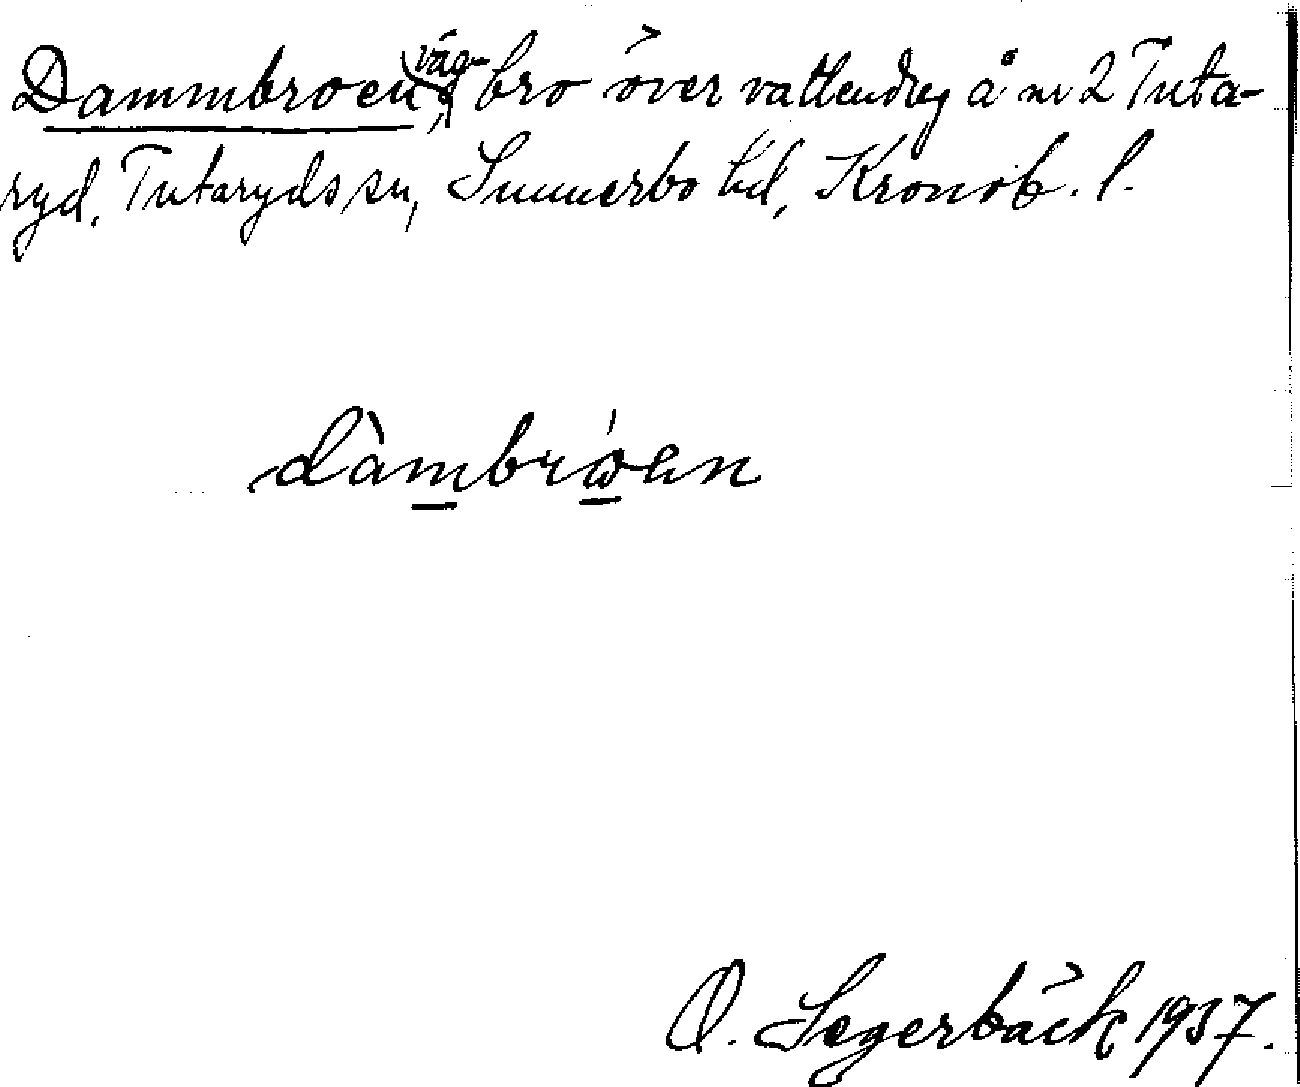 Dammbroen, väg-bro över vattendrag å nr 2 Tuta-
ryd, Tutaryds sn, Sunnerbo hd, Kronob. l.
dàmbrω´en
O. Segerbäck 1937.